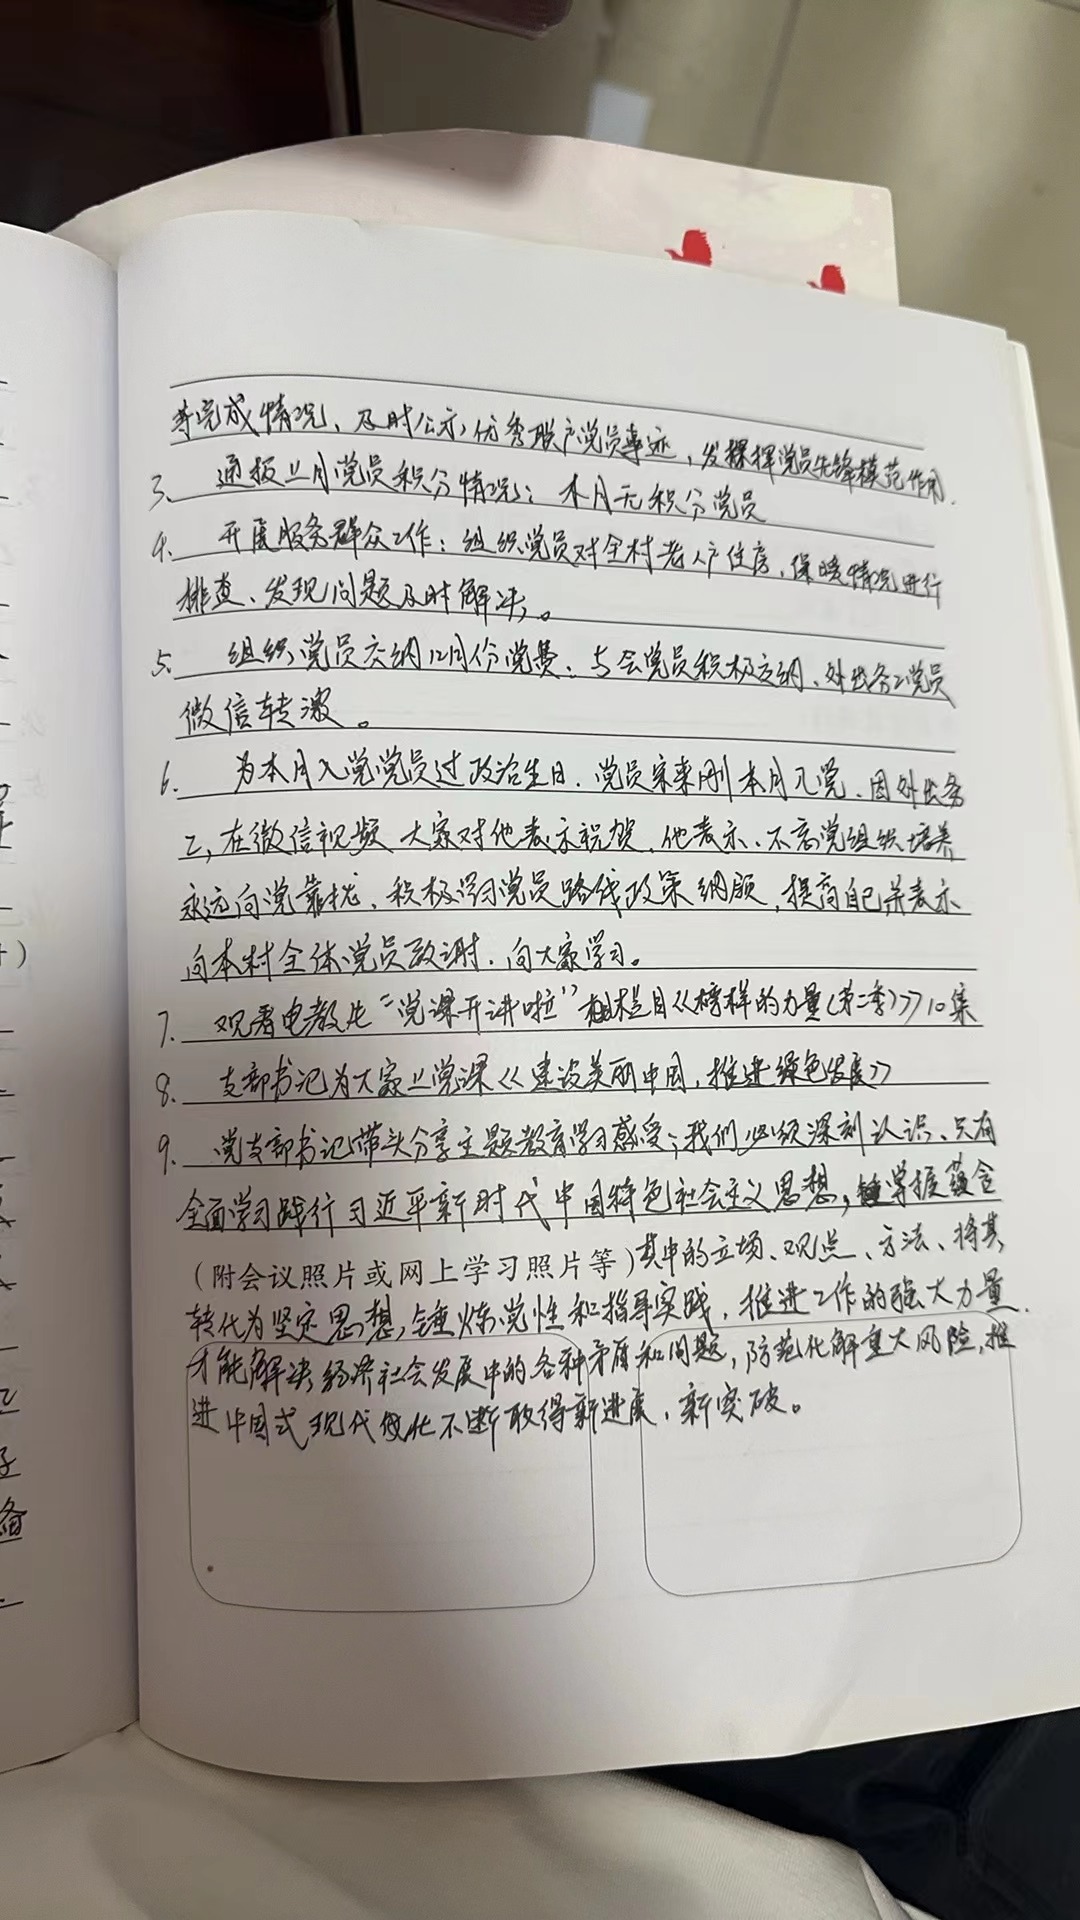 等完成情况、及时公示优秀联户党员事迹，发挥党员先锋模范作用.
3、通报上月党员积分情况：本月无积分党员
4、开展服务群众工作：组织党员对全村老人户住房、保暖情况进行
排查、发现问题及时解决。
5、组织党员交纳12月份党费、与会党员积极交纳、外出务工党员
微信转缴。
6、为本月入党党员过政治生日、党员宋来刚本月入党、因外出务
工，在微信视频、大家对他表示祝贺，他表示、不忘党组织培养，
永远向党靠拢、积极学习党员路线政策纲领，提高自己并表示
向本村全体党员致谢.向大家学习。
7、观看电教片“党课开讲啦”栏目《榜样的力量(第二季)》10集
8、支部书记为大家上党课《建设美丽中国，推进绿色发展》
9、党支部书记带头分享主题教育学习感受；我们必须深刻认识、只有
全面学习践行习近平新时代中国特色社会主义思想，掌握蕴含
（附会议照片或网上学习照片等）其中的立场、观点、方法、将其
转化为坚定思想，锤炼党性和指导实践，推进工作的强大力量.
才能解决经济社会发展中的各种矛盾和问题，防范化解重大风险，推
进中国式现代化不断取得新进展、新突破。